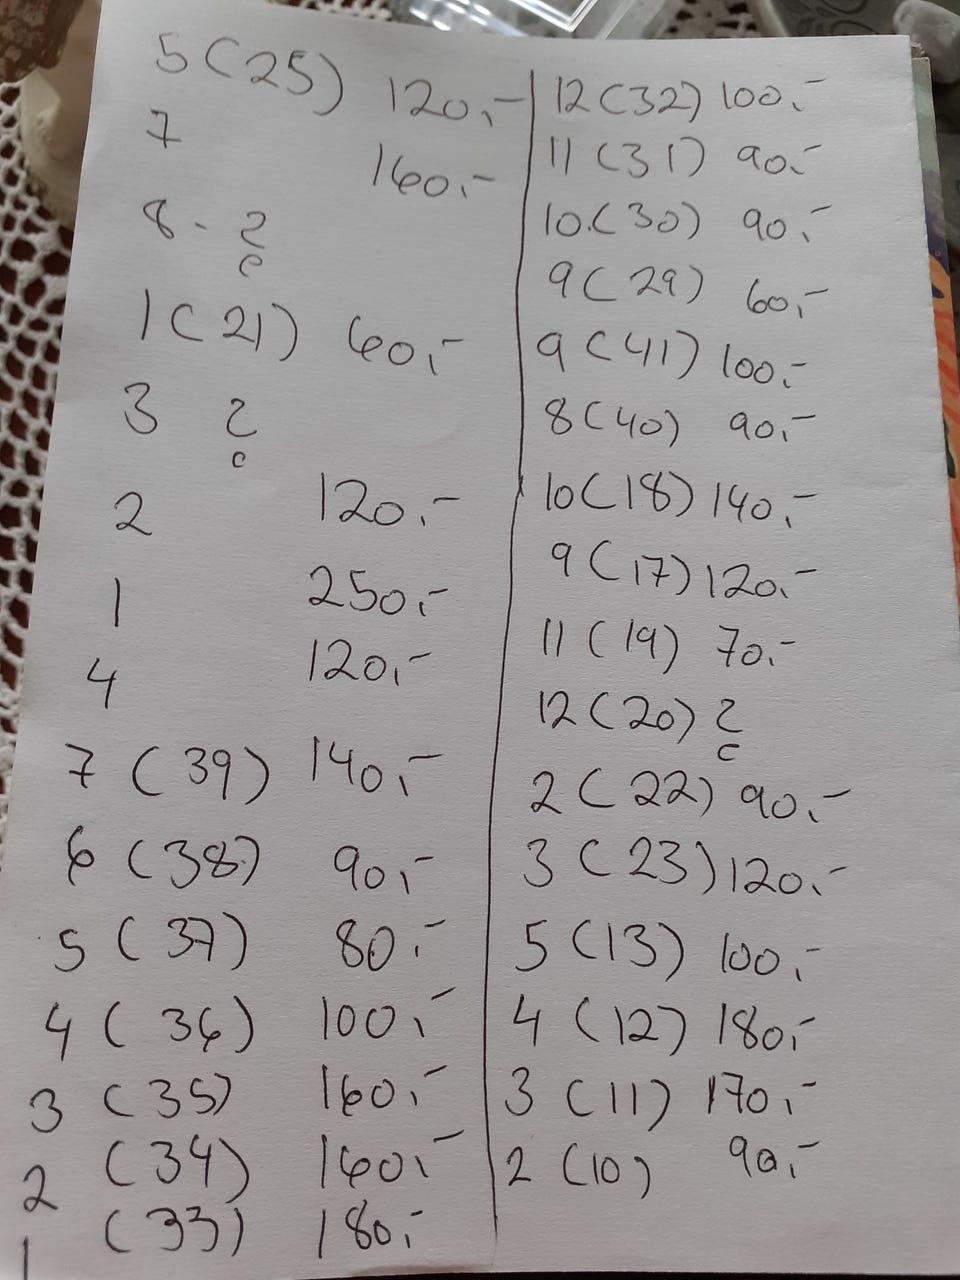 5 (25) 120,-
7 160,-
8 - ?
1 (21) 60,-
3 ?
2 120,-
1 250,-
4 120,-
7 (39) 140,-
6 (38) 90,-
5 (37) 80,-
4 (36) 100,-
3 (35) 160,-
2 (34) 160,-
1 (33) 180,-
12 (32) 100,-
11 (31) 90,-
10.(30) 90,-
9 (29) 60,-
9 (41) 100,-
8 (40) 90,-
10 (18) 140,-
9 (17) 120,-
11 (19) 70,-
12 (20) ?
2 (22) 90,-
3 (23) 120,-
5 (13) 100,-
4 (12) 180,-
3 (11) 170,-
2 (10) 90,-